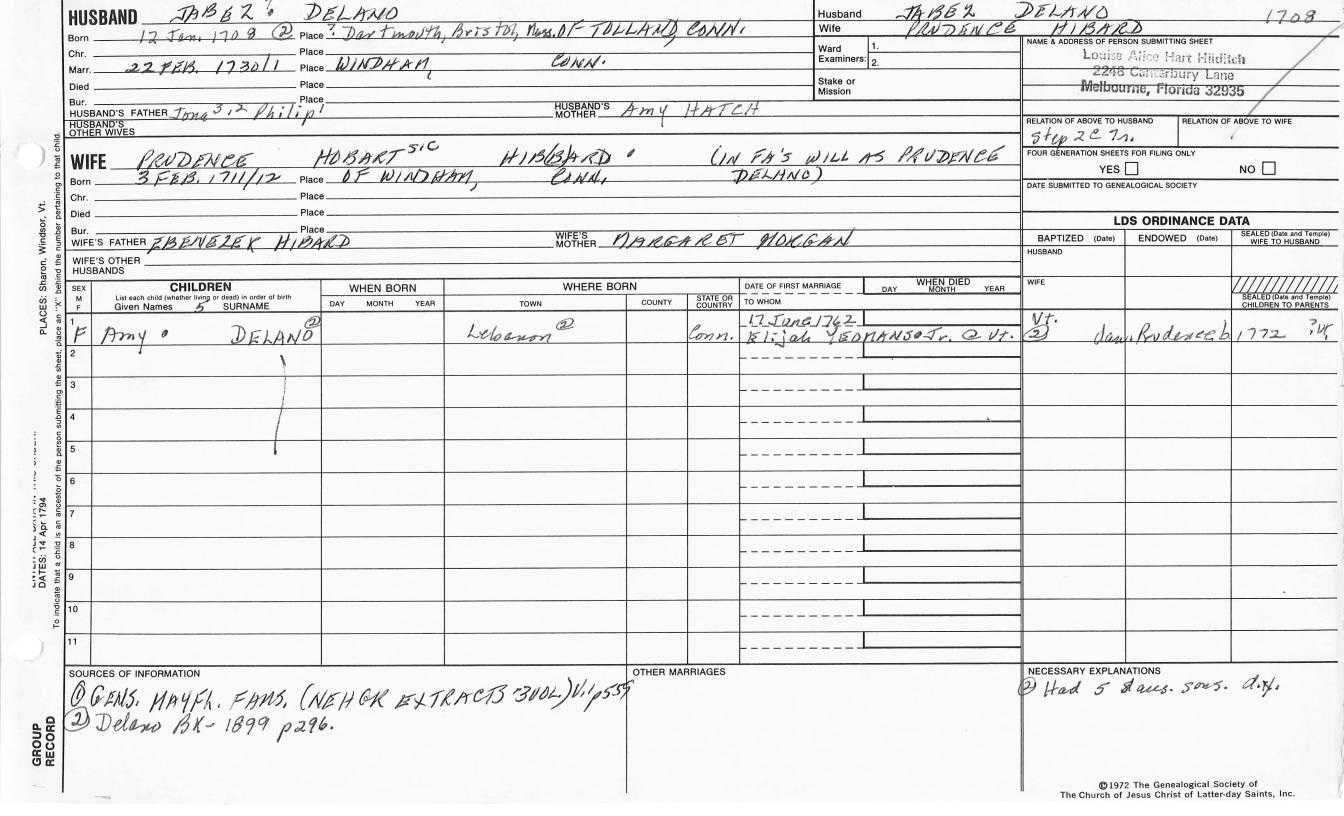 HUSBAND JABEZ DELANO
Born 12 Jan. 1708 ② Place ? Dartmouth, Bristol, Mass. OF TOLLAND, CONN.
Chr. Place
Marr. 22 FEB. 1730/1 Place WINDHAM, CONN.
Died Place
Bur. Place
HUSBAND'S FATHER Jona 3,2 Philip 1 HUSBAND'S MOTHER Amy HATCH
HUSBAND'S OTHER WIVES
WIFE PRUDENCE HOBART SIC HIB(B)ARD (IN FA'S WILL AS PRUDENCE
Born 3 FEB. 1711/12 Place OF WINDHAM, CONN. DELANO)
Chr. Place
Died Place
Bur. Place
WIFE'S FATHER EBENEZER HIBARD WIFE'S MOTHER MARGARET MORGAN
WIFE'S OTHER HUSBANDS
Husband JABEZ DELANO 1708
Wife PRUDENCE HIBARD
Ward Examiners: 1.
2.
Stake or Mission
NAME & ADDRESS OF PERSON SUBMITTING SHEET
Louise Alice Hart Hilditch
2248 Canterbury Lane
Melbourne, Florida 32935
RELATION OF ABOVE TO HUSBAND RELATION OF ABOVE TO WIFE
Step 2C 7r.
FOUR GENERATION SHEETS FOR FILING ONLY
YES NO
DATE SUBMITTED TO GENEALOGICAL SOCIETY
LDS ORDINANCE DATA
BAPTIZED (Date) ENDOWED (Date) SEALED (Date and Temple) WIFE TO HUSBAND
HUSBAND
WIFE
SEALED (Date and Temple) CHILDREN TO PARENTS
SEX M F
CHILDREN
List each child (whether living or dead) in order of birth
Given Names 5 SURNAME
WHEN BORN
DAY MONTH YEAR
WHERE BORN
TOWN COUNTY STATE OR COUNTRY
DATE OF FIRST MARRIAGE
TO WHOM
WHEN DIED
DAY MONTH YEAR
1 17 June 1762 Vt.
F Amy DELANO ② Lebanon ② Conn. Elijah YEOMANS Jr. @ Vt. ② dau. Prudence b 1772 ?Vt.
2
3
4
5
6
7
8
9
10
11
SOURCES OF INFORMATION
① GENS. MAYFL. FAMS. (NEHGR EXTRACTS 3VOL) V.1 p559
② Delano BK- 1899 p296.
OTHER MARRIAGES
NECESSARY EXPLANATIONS
② Had 5 daus. sons. d.y.
©1972 The Genealogical Society of
The Church of Jesus Christ of Latter-day Saints, Inc.
PLACES: Sharon, Windsor, Vt.
DATES: 14 Apr 1794
To indicate that a child is an ancestor of the person submitting the sheet, place an "X" behind the number pertaining to that child.
GROUP
RECORD